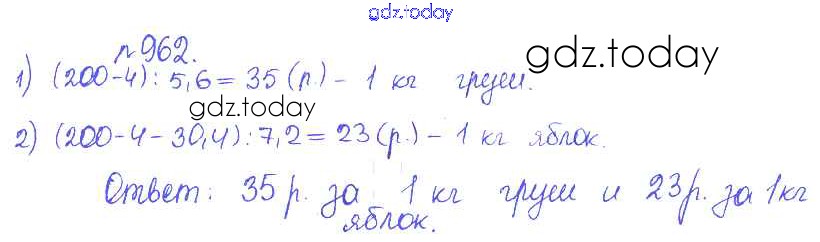 gdz.today
№962.
1) (200-4) : 5,6 = 35 (р.) - 1 кг груш.
gdz.today
gdz.today
2) (200-4-30,4) : 7,2 = 23 (р.) - 1 кг яблок.
Ответ: 35 р. за 1 кг груш и 23 р. за 1 кг
яблок.